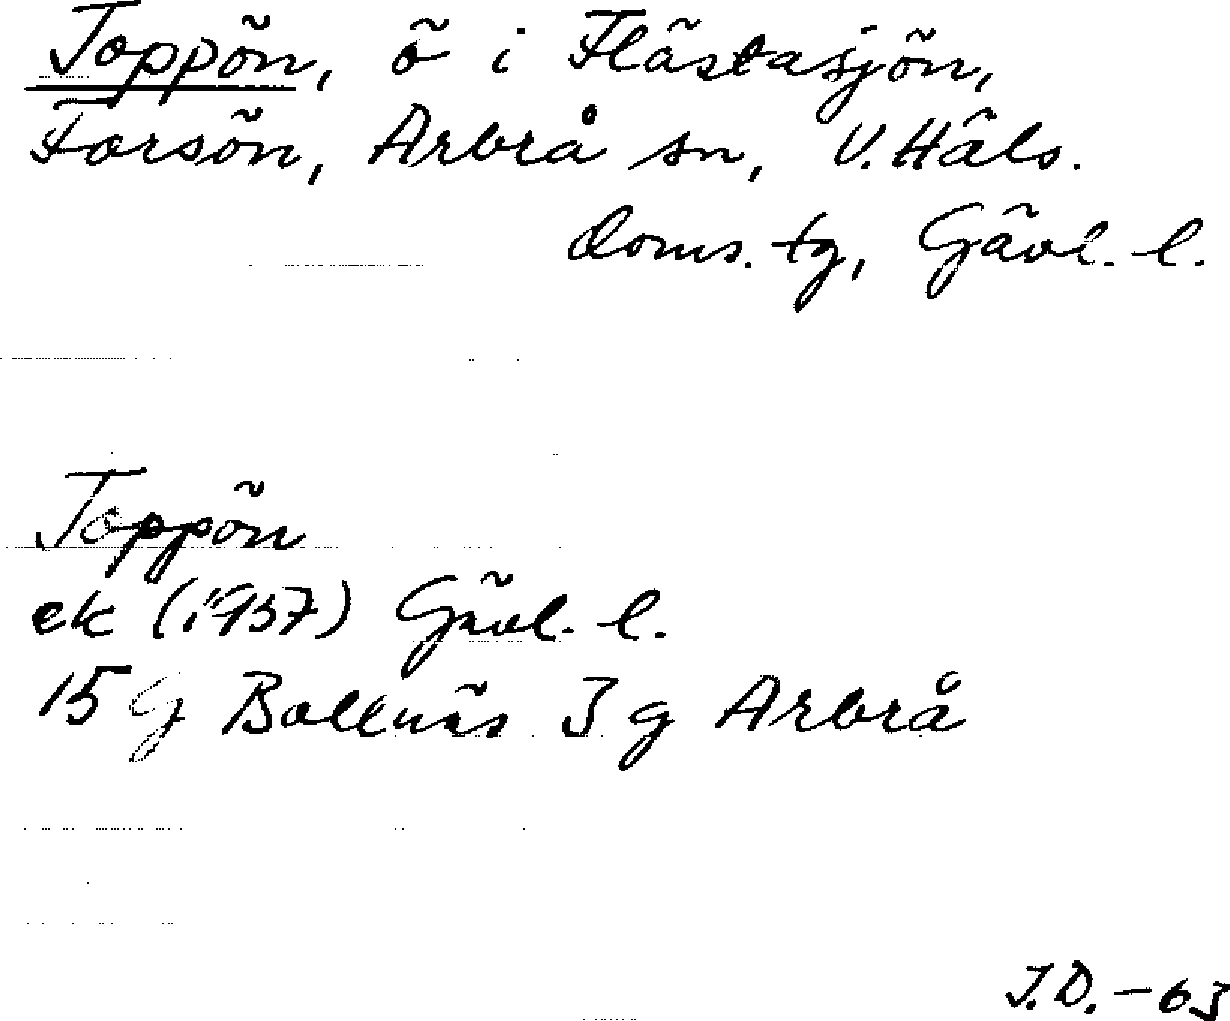 Toppön, ö i Flästasjön,
Forsön, Arbrå sn, V. Häls.
doms. tg, Gävl. l.
Toppön
ek (1957) Gävl. l.
15 G Bollnäs 3 g Arbrå
J.D. - 63